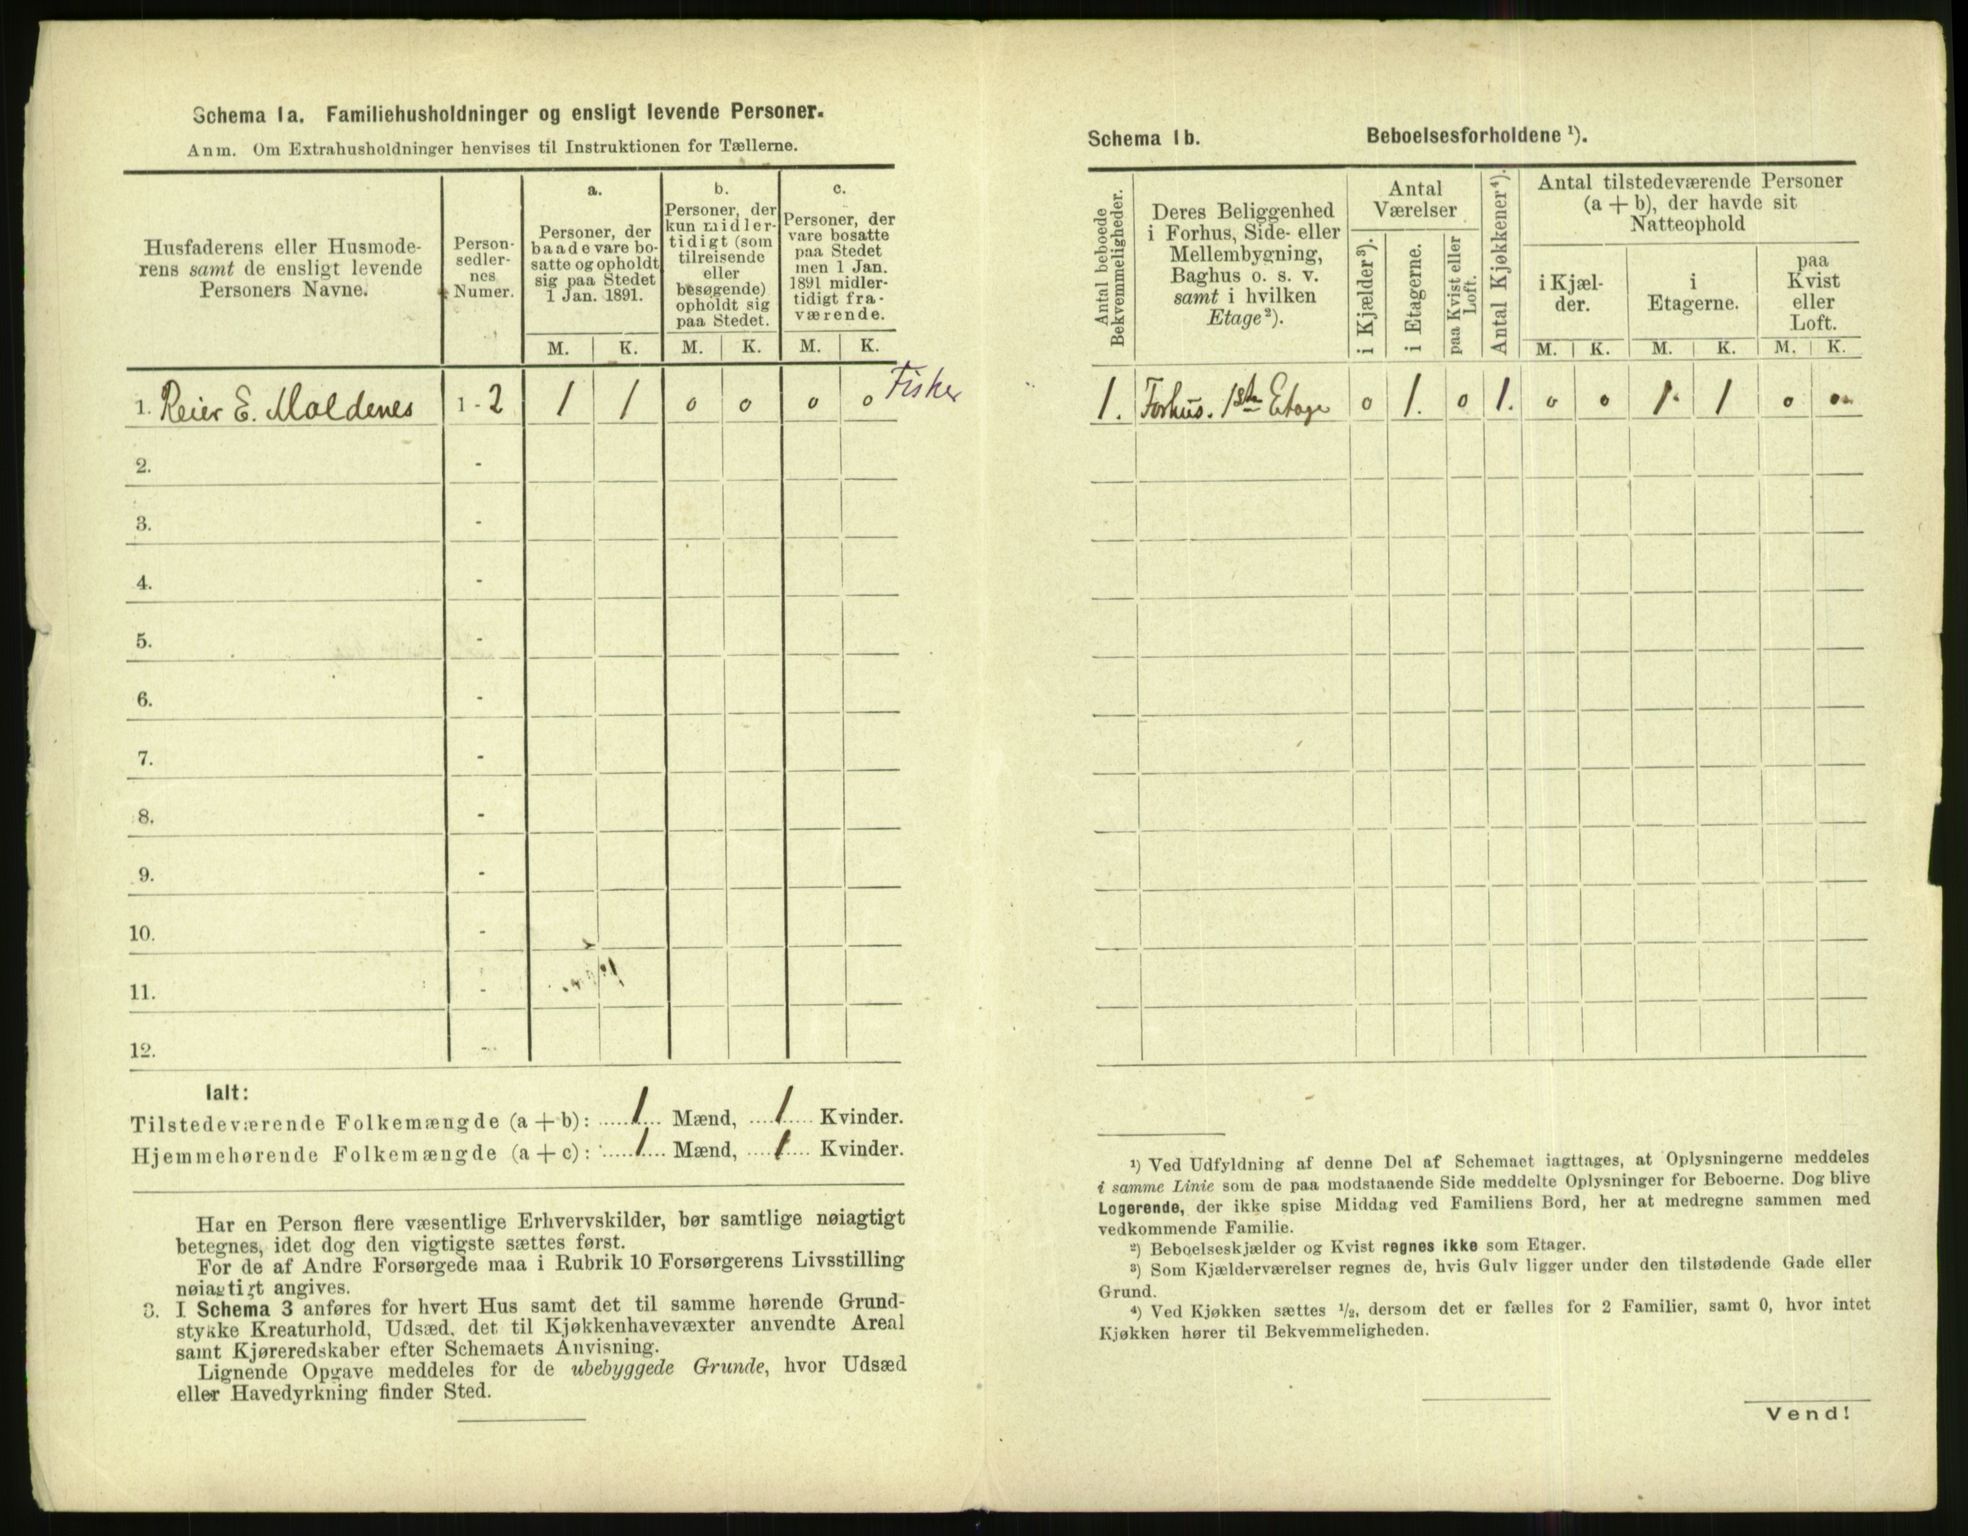 Schema 1a. Familiehusholdninger og ensligt levende Personer.
Anm. Om Extrahusholdninger henvises til Instruktionen for Tællerne.
Husfaderens eller Husmode-
rens samt de ensligt levende
Personers Navne.
Person-
sedler-
nes
Numer.
a.
Personer, der
baade vare bo-
satte og opholdt
sig paa Stedet
1 Jan. 1891.
b.
Personer, der
kun midler-
tidigt (som
tilreisende
eller
besøgende)
opholdt sig
paa Stedet.
c.
Personer, der
vare bosatte
paa Stedet
men 1 Jan.
1891 midler-
tidigt fra-
værende.
M. K. M. K. M. K.
1. Reier E. Moldenes 1 - 2 1 1 0 0 0 0 Fisker
2. -
3. -
4. -
5. -
6. -
7. -
8. -
9. -
10. -
11. -
12. -
Ialt:
Tilstedeværende Folkemængde (a + b): 1 Mænd, 1 Kvinder.
Hjemmehørende Folkemængde (a + c): 1 Mænd, 1 Kvinder.
Har en Person flere væsentlige Erhvervskilder, bør samtlige nøiagtigt
betegnes, idet dog den vigtigste sættes først.
For de af Andre Forsørgede maa i Rubrik 10 Forsørgerens Livsstilling
nøiagtigt angives.
3. I Schema 3 anføres for hvert Hus samt det til samme hørende Grund-
stykke Kreaturhold, Udsæd, det til Kjøkkenhavevæxter anvendte Areal
samt Kjøreredskaber efter Schemaets Anvisning.
Lignende Opgave meddeles for de ubebyggede Grunde, hvor Udsæd
eller Havedyrkning finder Sted.
Schema 1b. Beboelsesforholdene ¹).
Antal beboede
Bekvemmeligheder.
Deres Beliggenhed
i Forhus, Side- eller
Mellembygning,
Baghus o. s. v.
samt i hvilken
Etage²).
Antal
Værelser
i Kjælder³).
i Etagerne.
paa Kvist eller
Loft.
Antal Kjøkkener⁴).
Antal tilstedeværende Personer
(a + b), der havde sit
Natteophold
i Kjæl-
der.
i
Etagerne.
paa
Kvist
eller
Loft.
M. K. M. K. M. K.
1. Forhus. 1ste Etage 0 1. 0 1. 0 0 1. 1 0 0
¹) Ved Udfyldning af denne Del af Schemaet iagttages, at Oplysningerne meddeles
i samme Linie som de paa modstaaende Side meddelte Oplysninger for Beboerne. Dog blive
Logerende, der ikke spise Middag ved Familiens Bord, her at medregne sammen med
vedkommende Familie.
²) Beboelseskjælder og Kvist regnes ikke som Etager.
³) Som Kjælderværelser regnes de, hvis Gulv ligger under den tilstødende Gade eller
Grund.
⁴) Ved Kjøkken sættes ¹/₂, dersom det er fælles for 2 Familier, samt 0, hvor intet
Kjøkken hører til Bekvemmeligheden.
Vend!